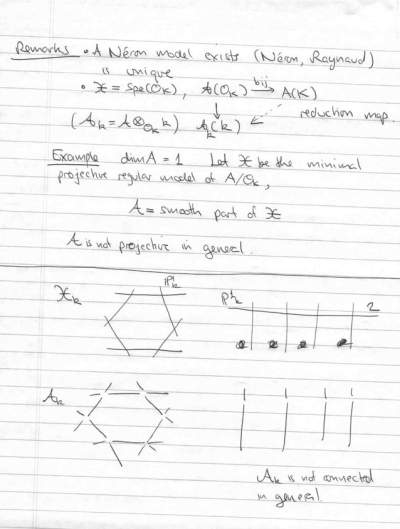 Remarks • A Néron model exists (Néron, Raynaud)
is unique
• 𝒳 = Spe(O_K), 𝒜(O_K) →^{bij} A(K)
↓ reduction map.
(𝒜_k = 𝒜 ⊗_{O_K} k) 𝒜_k(k)
Example dim A = 1 Let 𝒳 be the minimal
projective regular model of A/O_K,
𝒜 = smooth part of 𝒳
𝒜 is not projective in general.
𝒳_k ℙ¹_k ℙ¹_k 2
𝒜_k
𝒜_k is not connected
in general.